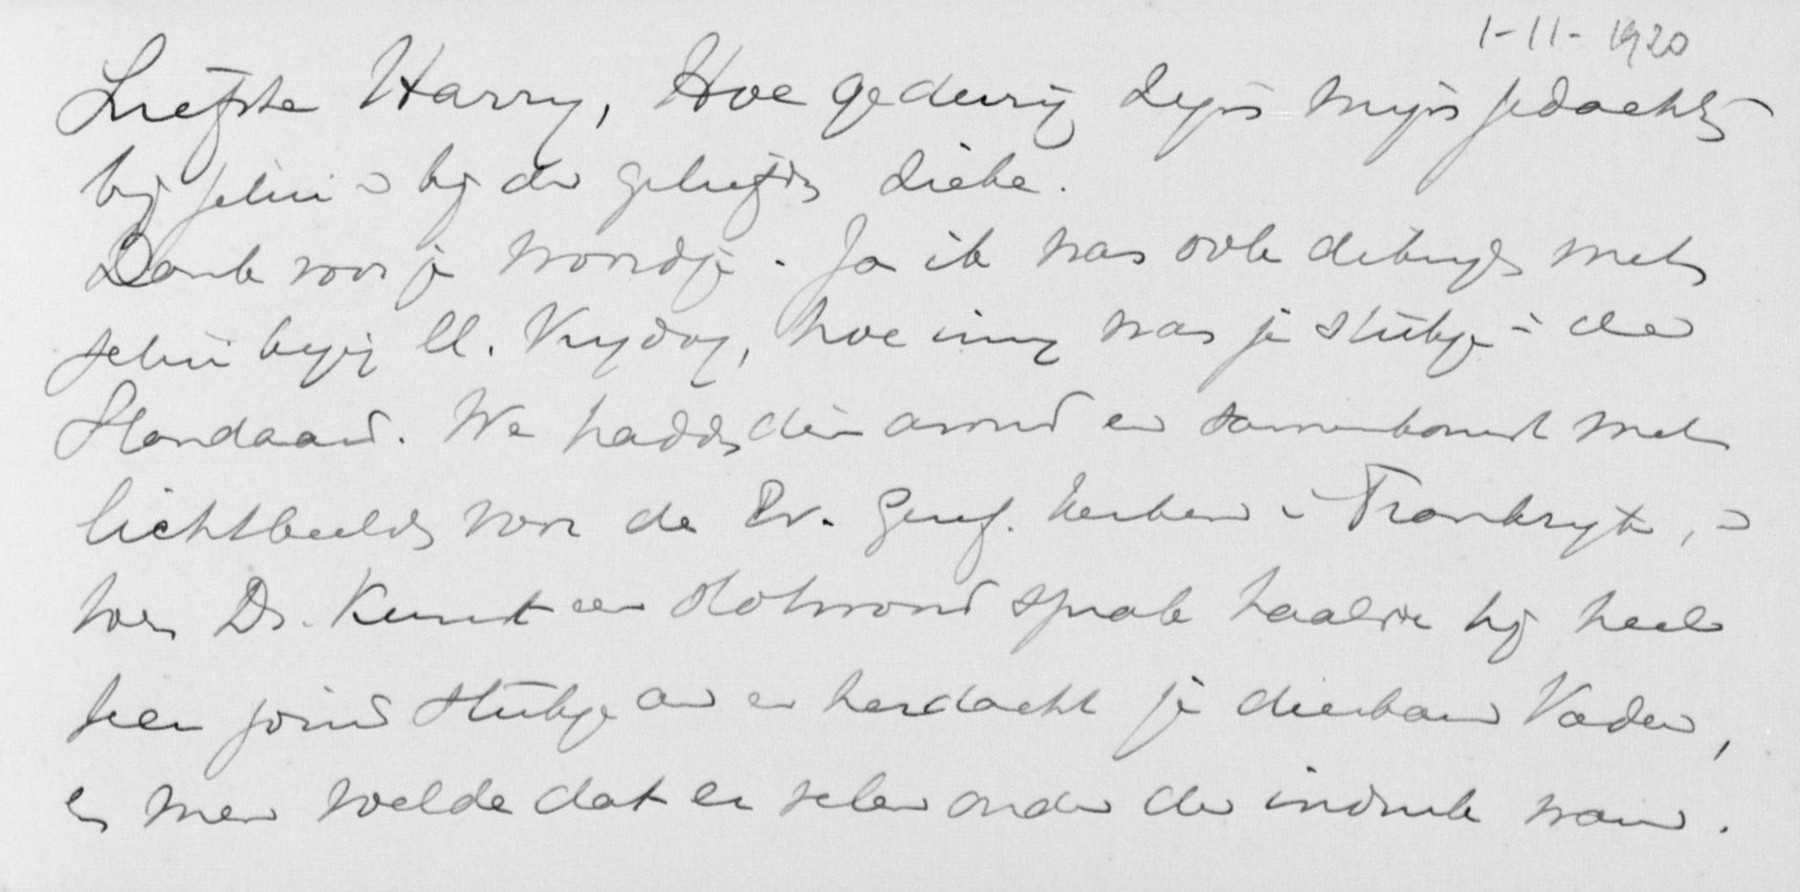 1-11-1920
Liefste Harry, Hoe gedurig zijn mijn gedachten
bij jelui en bij de geliefde
Dank voor je woordje. Ja ik was ook met
jelui bezig ll. Vrijdag, hoe innig was je stukje in de
Standaard. We hadden dien avond een samenkomst met
lichtbeelden voor de Pr. Geref. Kerken in Frankrijk, en
toen Dr. een slotwoord sprak haalde hij heel
je stukje aan en herdacht je dierbaren Vader,
en men voelde dat er velen onder den indruk waren.